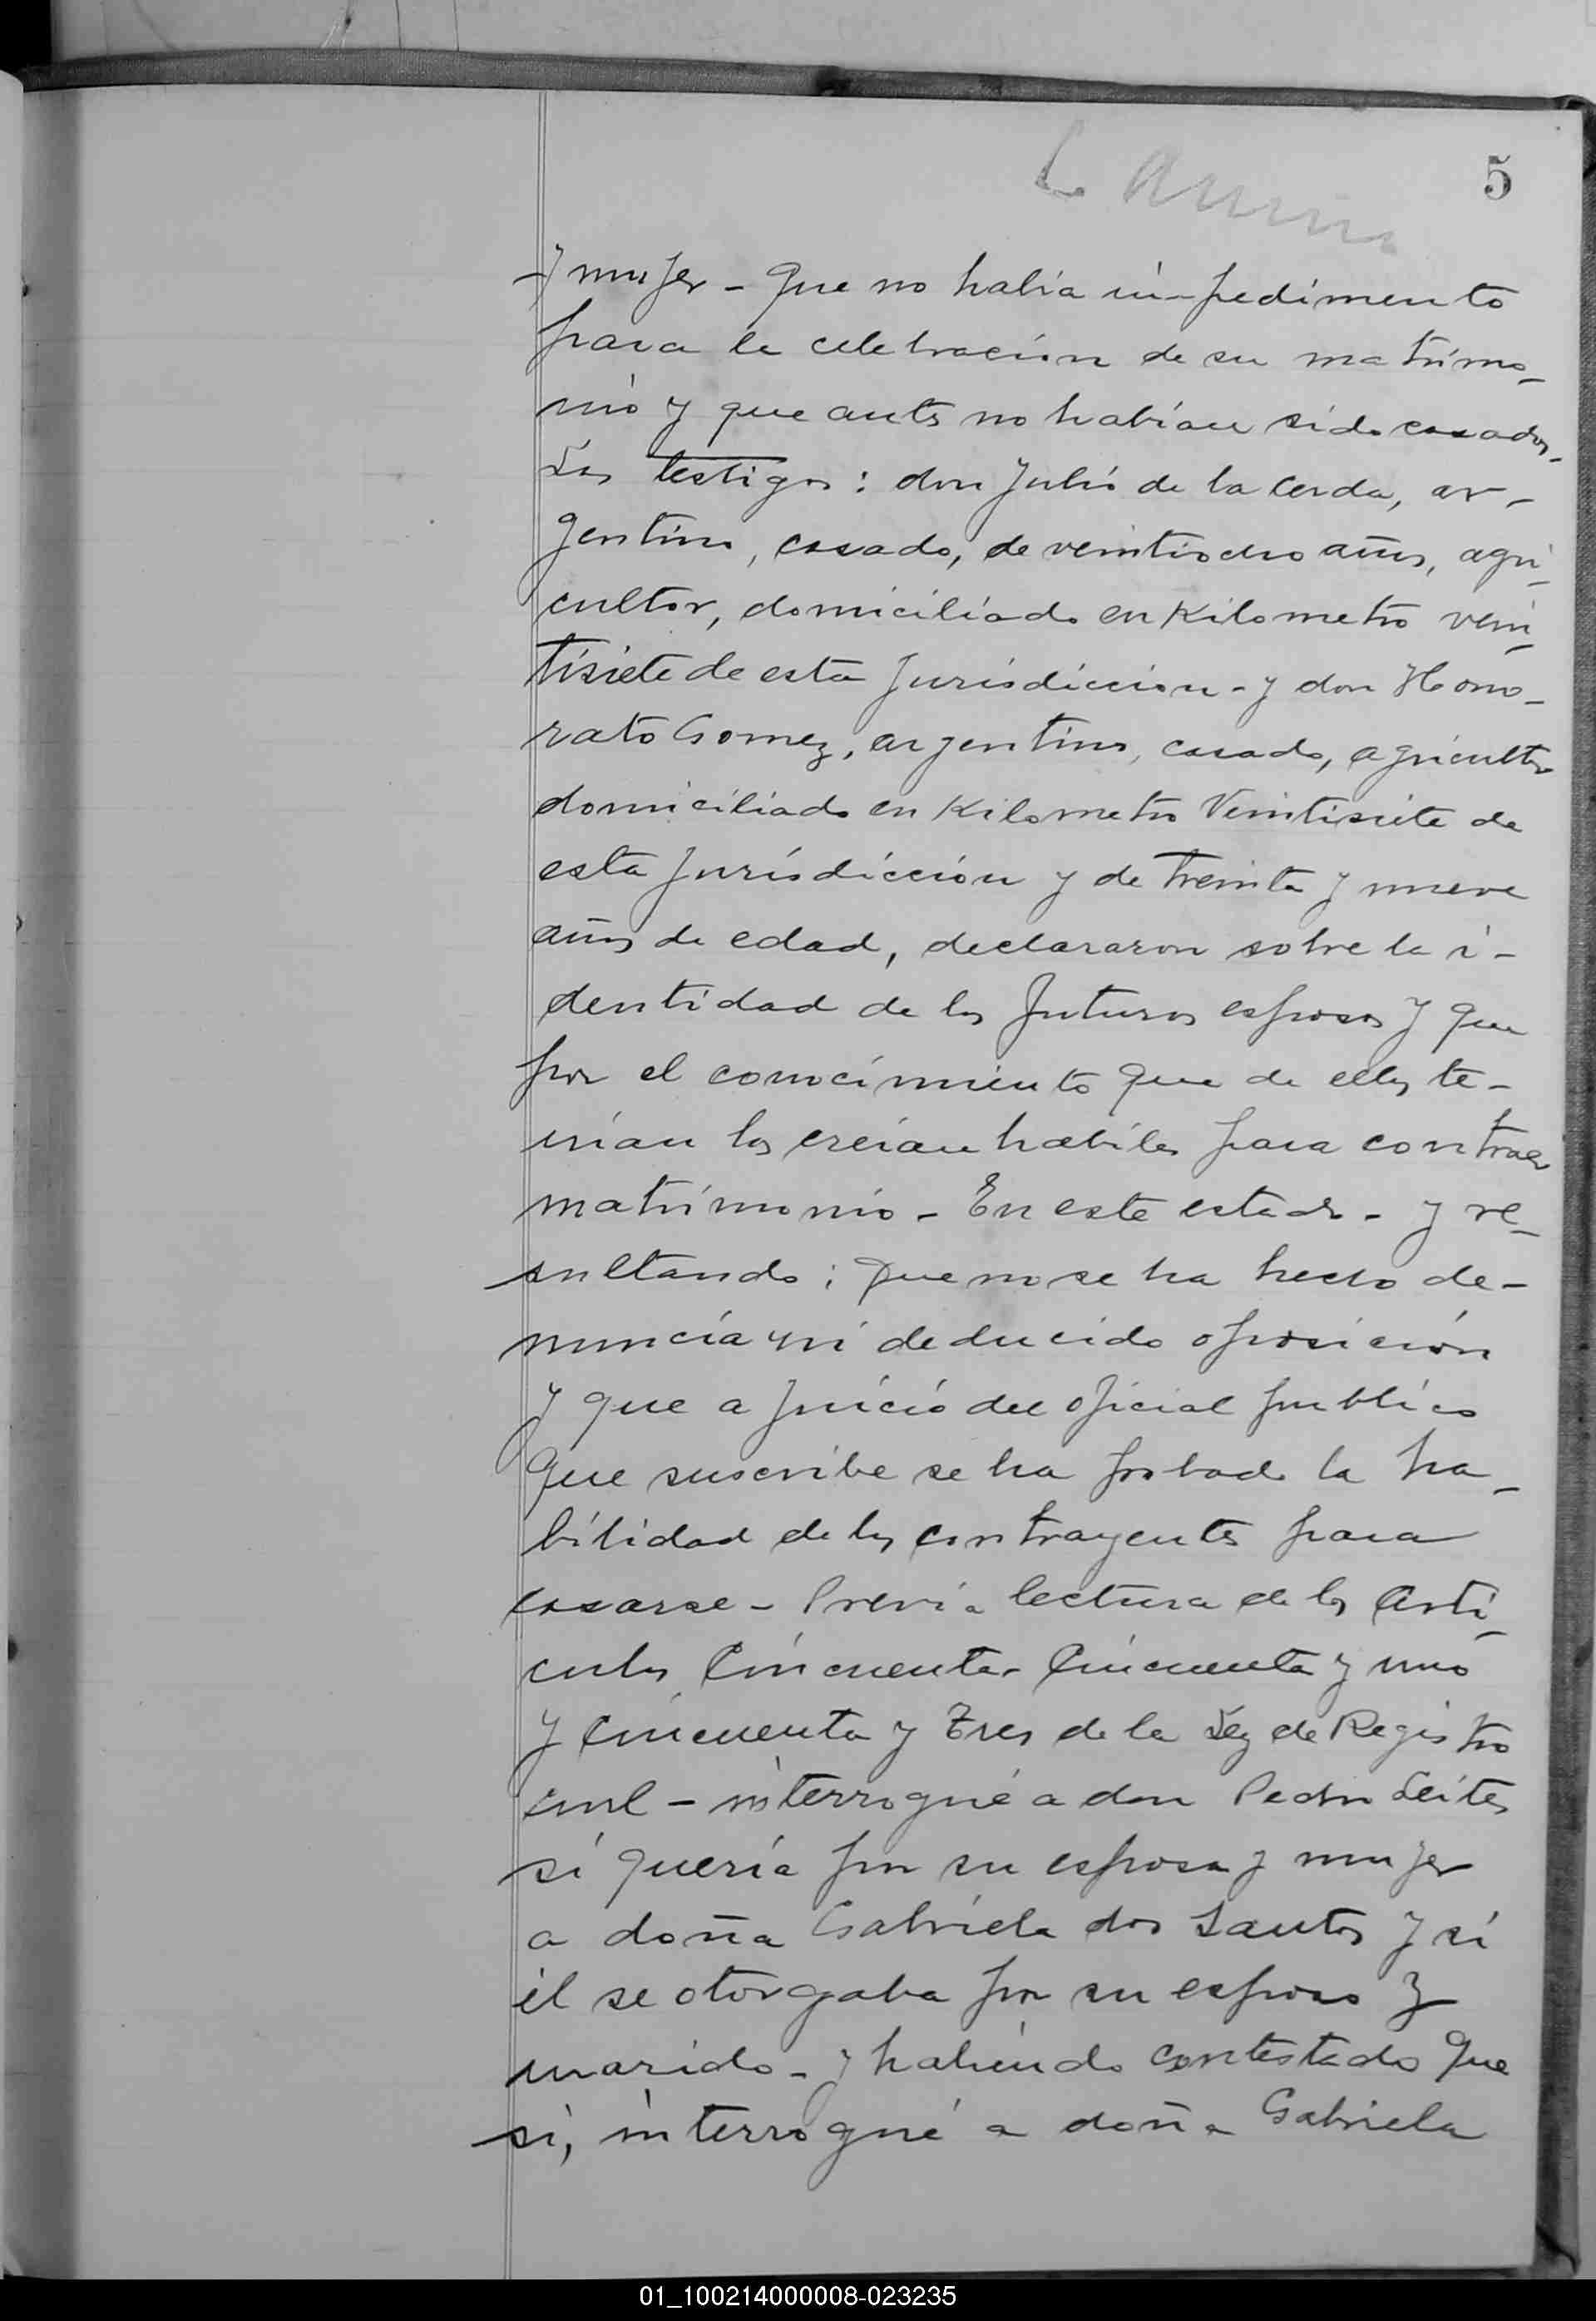 5
y mujer - Que no habia impedimento
para la celebración de su matrimo-
nio y que antes no habían sido casados-
Los testigos: don Julio de la Cerda, ar-
gentino, casado, de veintiocho años, agri-
cultor, domiciliado en Kilometro vein-
tisiete de esta Jurisdiccion - y don Hono-
rato Gomez, argentino, casado, agricultor
domiciliado en Kilometro Veintisiete de
esta Jurísdicción y de treinta y nueve
años de edad, declararon sobre la i-
dentidad de los futuros esposos y que
por el conocimiento que de ellos te-
nían los creían habiles para contraer
matrimonio - En este estado - y re-
sultando: Que no se ha hecho de-
nuncia ni deducido oposición
y que a juicio del oficial publico
que suscribe se ha probado la ha-
bilidad de los contrayentes para
casarse - Previa lectura de los Arti-
culos Cincuenta - Cincuenta y uno
y Cincuenta y Tres de la Ley de Registro
Civil - interrogué a don Pedro Leites
si quería por su esposa y mujer
a doña Gabriela dos Santos y si
él se otorgaba por su esposo y
marido - y habiendo contestado que
si, interrogué a doña Gabriela
01_100214000008-023235